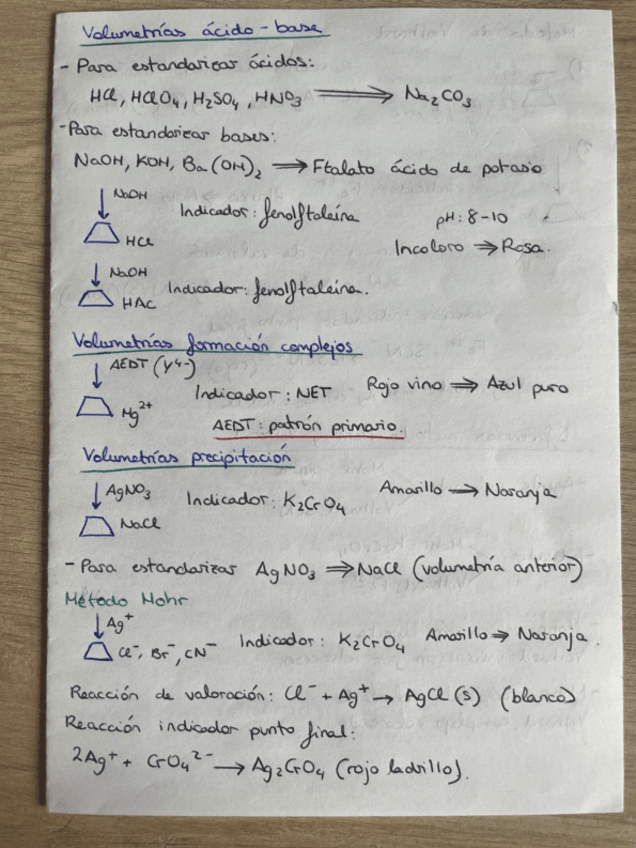 Volumetrías ácido-base
- Para estandarizar ácidos:
HCl, HClO₄, H₂SO₄, HNO₃ ⟹ Na₂CO₃
- Para estandarizar bases:
NaOH, KOH, Ba(OH)₂ ⟹ Ftalato ácido de potasio
↓ NaOH Indicador: fenolftaleína pH: 8-10
HCl Incoloro ⟹ Rosa.
↓ NaOH
HAC Indicador: fenolftaleína.
Volumetrías formación complejos
↓ AEDT (Y⁴⁻)
Mg²⁺ Indicador: NET Rojo vino ⟹ Azul puro
AEDT: patrón primario.
Volumetrías precipitación
↓ AgNO₃ Indicador: K₂CrO₄ Amarillo → Naranja
NaCl
- Para estandarizar AgNO₃ ⟹ NaCl (volumetría anterior)
Método Mohr
↓ Ag⁺
Cl⁻, Br⁻, CN⁻ Indicador: K₂CrO₄ Amarillo ⟹ Naranja.
Reacción de valoración: Cl⁻ + Ag⁺ → AgCl (s) (blanco)
Reacción indicador punto final:
2Ag⁺ + CrO₄²⁻ → Ag₂CrO₄ (rojo ladrillo).